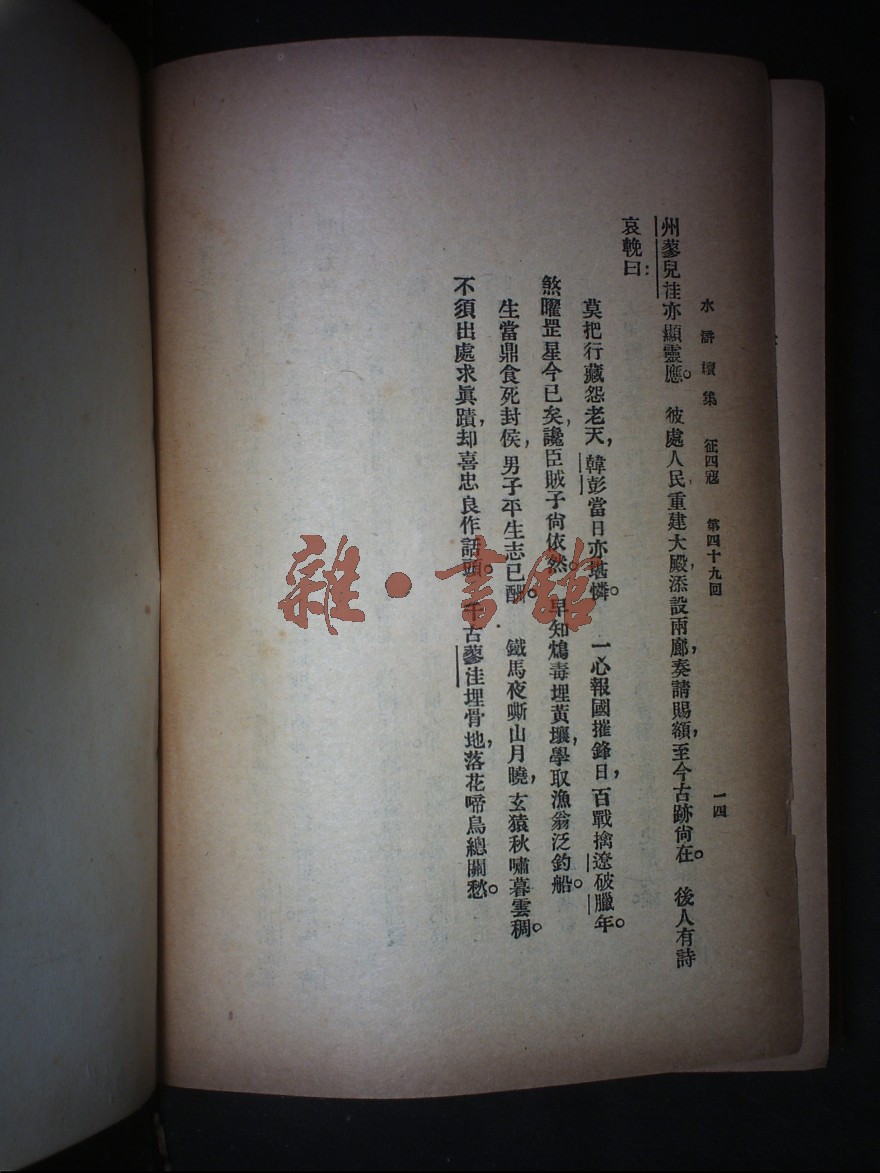 水滸續集　征四寇　第四十九回　一四
州蓼兒洼亦顯靈應。彼處人民,重建大殿,添設兩廊,奏請賜額,至今古跡尙在。後人有詩
哀輓曰:
莫把行藏怨老天,韓彭當日亦堪憐。一心報國摧鋒日,百戰擒遼破臘年。
煞曜罡星今已矣,讒臣賊子尙依然。早知鴆毒埋黃壤,學取漁翁泛釣船。
生當鼎食死封侯,男子平生志已酬。鐵馬夜嘶山月曉,玄猿秋嘯暮雲稠。
不須出處求眞蹟,却喜忠良作話頭。千古蓼洼埋骨地,落花啼鳥總關愁。
雜·書館